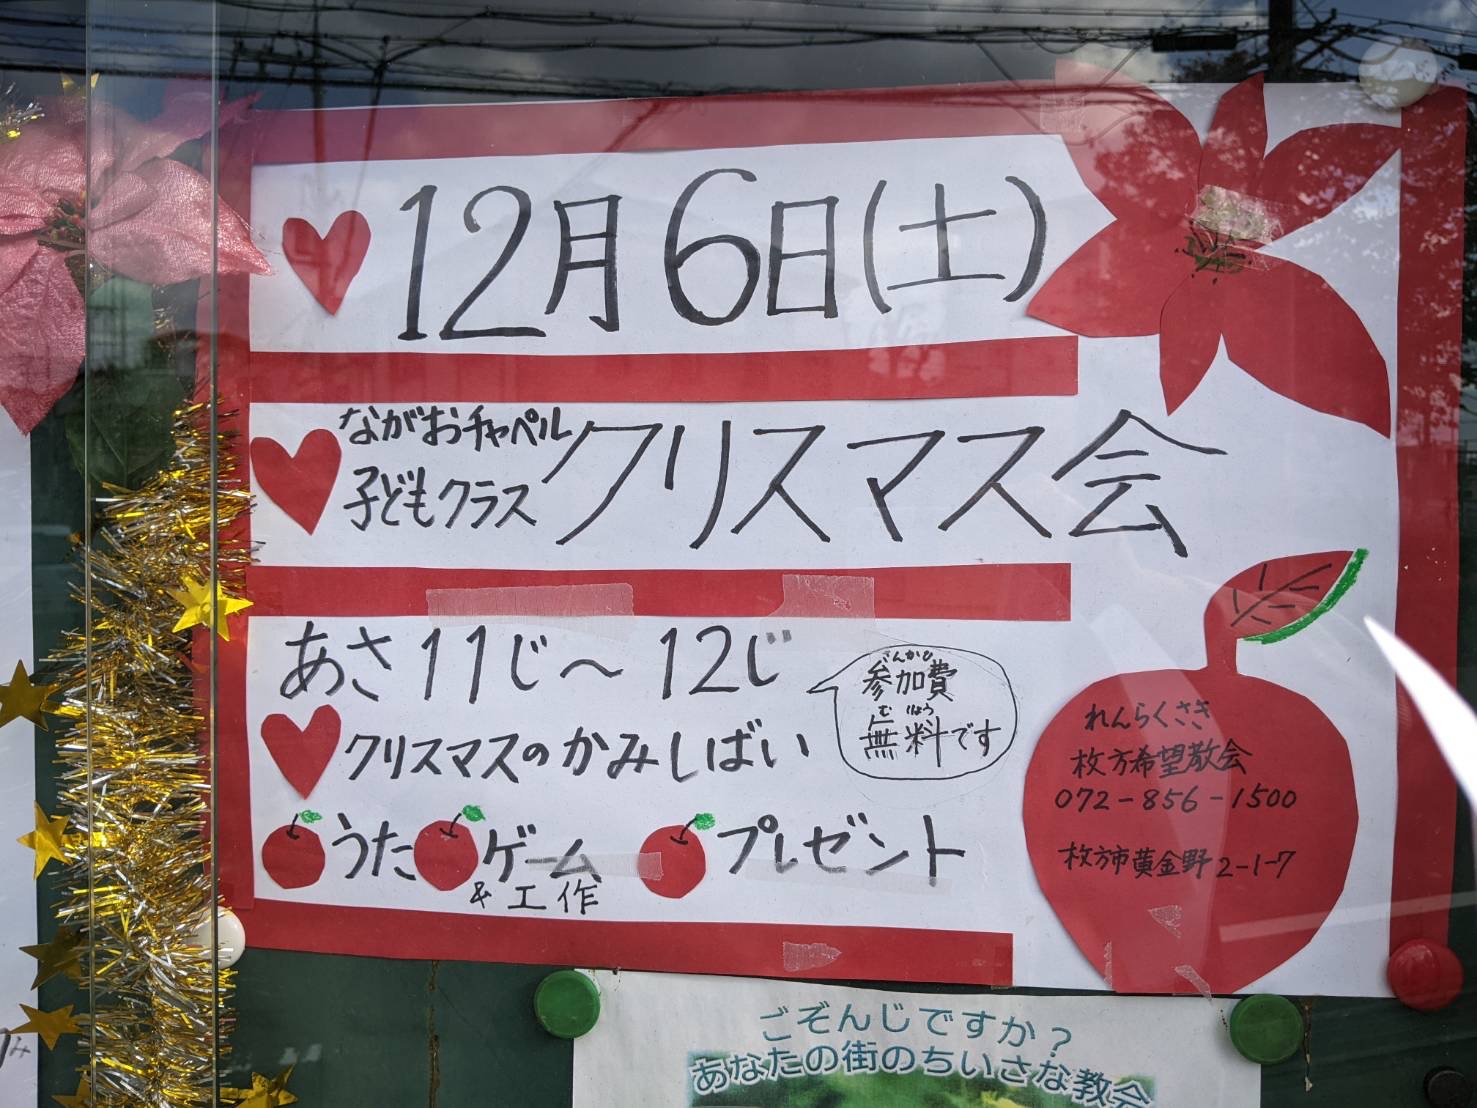 12月6日(土)
ながおチャペル
子どもクラス
クリスマス会
あさ11じ〜12じ
さんかひ
参加費
むりょう
無料です
クリスマスのかみしばい
うた ゲーム プレゼント
&工作
れんらくさき
枚方希望教会
072-856-1500
枚方市黄金野2-1-7
ごぞんじですか？
あなたの街のちいさな教会